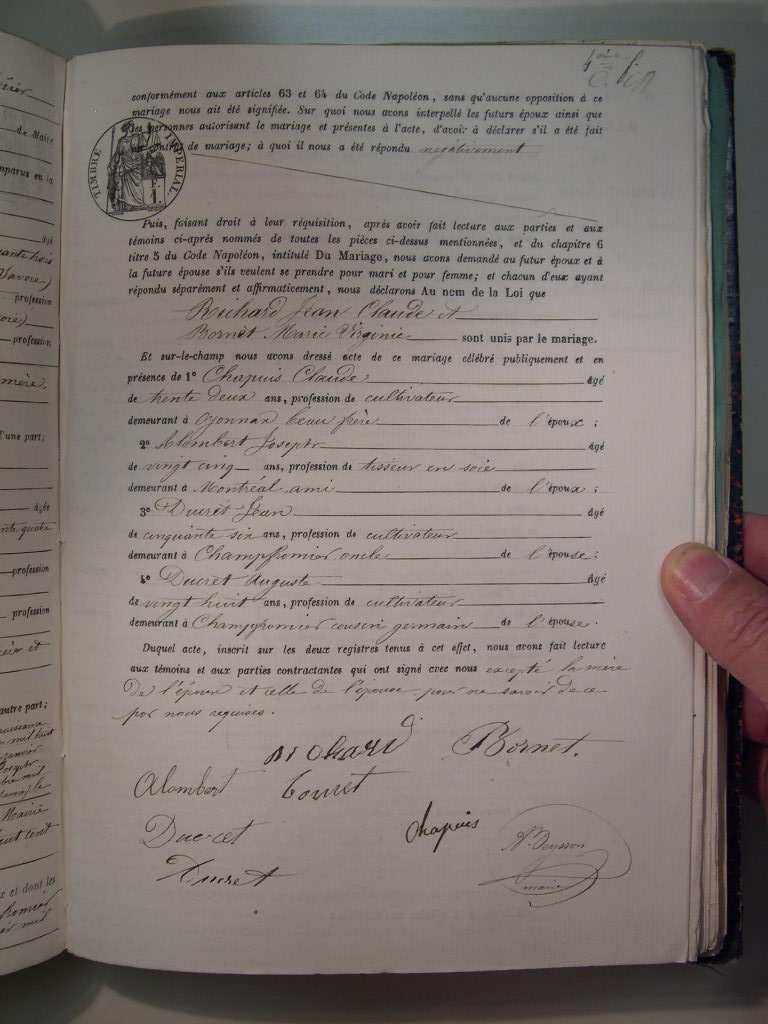 4ème
conformément aux articles 63 et 64 du Code Napoléon, sans qu'aucune opposition à ce
mariage nous ait été signifiée. Sur quoi nous avons interpellé les futurs époux ainsi que
les personnes autorisant le mariage et présentes à l'acte, d'avoir à déclarer s'il a été fait
un contrat de mariage; à quoi il nous a été répondu négativement
TIMBRE IMPÉRIAL
F. 1.
Puis, faisant droit à leur réquisition, après avoir fait lecture aux parties et aux
témoins ci-après nommés de toutes les pièces ci-dessus mentionnées, et du chapitre 6
titre 5 du Code Napoléon, intitulé Du Mariage, nous avons demandé au futur époux et à
la future épouse s'ils veulent se prendre pour mari et pour femme; et chacun d'eux ayant
répondu séparément et affirmativement, nous déclarons Au nom de la Loi que
Richard Jean Claude et
Bornet Marie Virginie sont unis par le mariage.
Et sur-le-champ nous avons dressé acte de ce mariage célébré publiquement et en
présence de 1° Chapuis Claude âgé
de trente deux ans, profession de cultivateur
demeurant à Oyonnax beau frère de l'époux;
2° Alombert Joseph âgé
de vingt cinq ans, profession de tisseur en soie
demeurant à Montréal ami de l'époux;
3° Ducret Jean âgé
de cinquante six ans, profession de cultivateur
demeurant à Champfromier oncle de l'épouse;
4° Ducret Auguste âgé
de vingt huit ans, profession de cultivateur
demeurant à Champfromier cousin germain de l'épouse.
Duquel acte, inscrit sur les deux registres tenus à cet effet, nous avons fait lecture
aux témoins et aux parties contractantes qui ont signé avec nous excepté la mère
de l'époux et celle de l'épouse pour ne savoir de ce
par nous requises.
Richard Bornet.
Alombert Bornet
Ducret Chapuis
Ducret maire